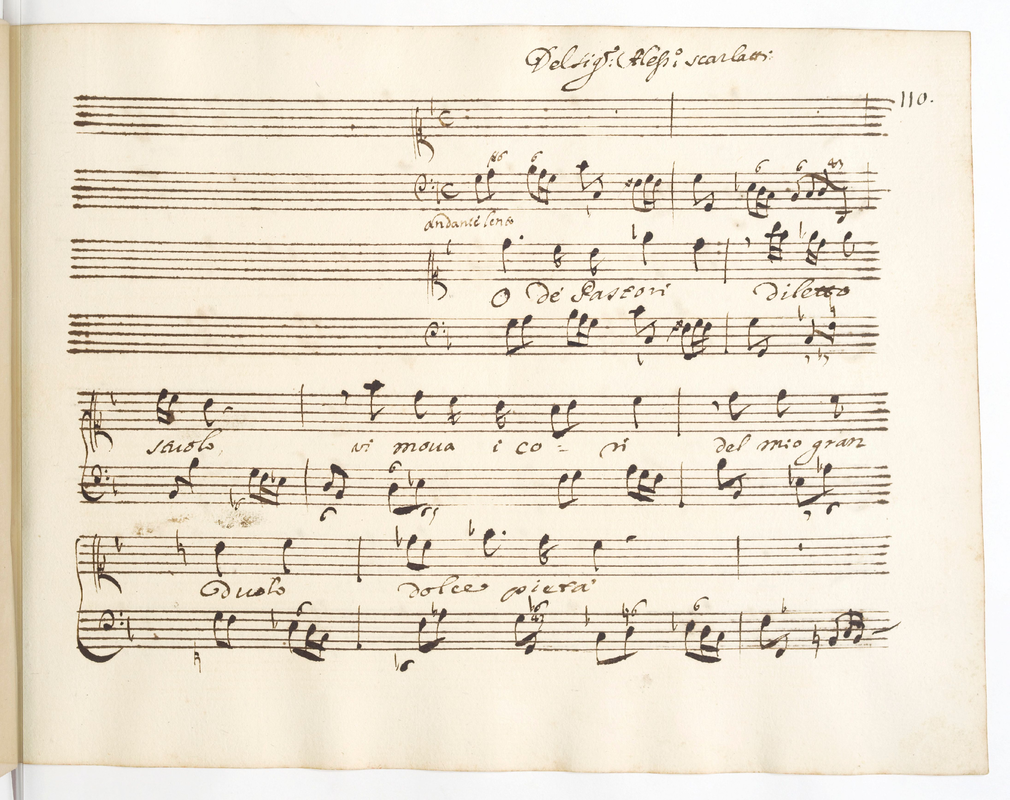 Del Sigr: Aless: Scarlatti:
110.
andante lento
O dè Pastori diletto
stuolo, vi mova i co - ri del mio gran
duolo dolce pietà